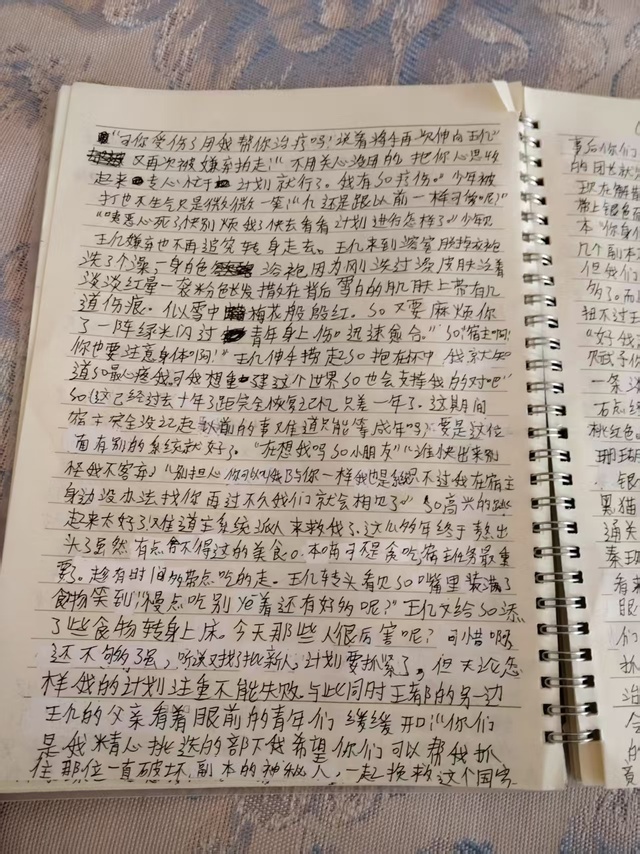 "可你受伤了用我帮你治疗吗?说着将手再次伸向王亿"
又再次被嫌弃拍走"不用关心没用的 把你心思收
起来 专心忙于 计划就行了。我有SO疗伤。"少年被
打也不生气只是微微一笑"亿还是跟以前一样可爱呢?"
"咦恶心死了快别烦我了快去看看计划进行怎样了"少年见
王亿嫌弃也不再追究转身走去。王亿来到浴室脱掉衣袍
洗了个澡,一身白色 浴袍因为刚洗过澡皮肤泛着
淡淡红晕一袭粉色长发撒在背后 雪白的肌肤上带有几
道伤痕。似雪中 梅花般殷红。SO又要麻烦你
了一阵绿光闪过 青年身上伤口迅速愈合。"SO宿主啊!
你也要注意身体啊!"王亿伸手捞起SO抱在怀中 我就知
道SO最心疼我可我想重 建这个世界SO也会支持我的对吧"
SO(这已经过去十年了距完全恢复记忆只差一年了。这期间
宿主完全没记起 以前的事难道只能等成年吗?要是这位
面有别的系统就好了。"在想我吗SO小朋友""谁快出来别
怪我不客气""别担心你可以叫我 与你一样我也是系统不过我在宿主
身边没办法找你再过不久我们就会相见了"SO高兴的跳
起来太好了难道主系统派人来救我了.这么多年终于熬出
头了虽然有点舍不得这的美食。本 可不是贪吃宿主任务最重
要了。趁有时间多带点吃的走。王亿转头看见SO嘴里装满了
食物笑到"慢点吃别噎着还有好多呢?"王亿又给SO添
了些食物转身上床。今天那些人很厉害呢?可惜啊
还不够强,听说又找了批新人,计划要抓紧了,但无论怎
样我的计划注重不能失败.与此同时王都的另一边
王亿的父亲看着眼前的青年们 缓缓开口"你们
是我精心挑选的部下我希望你们可以帮我抓
住那位一直破坏副本的神秘人,一起拯救这个国家
事后你们
的团长就
现在解
带上银色
本"你身
几个副本
但我们
够了而
扭不过王
"好我
赋予你
一条
右点
桃红色
珊瑚
银
黑猫
通关
秦玖
看来
眼
们
抓
治
会
的
页